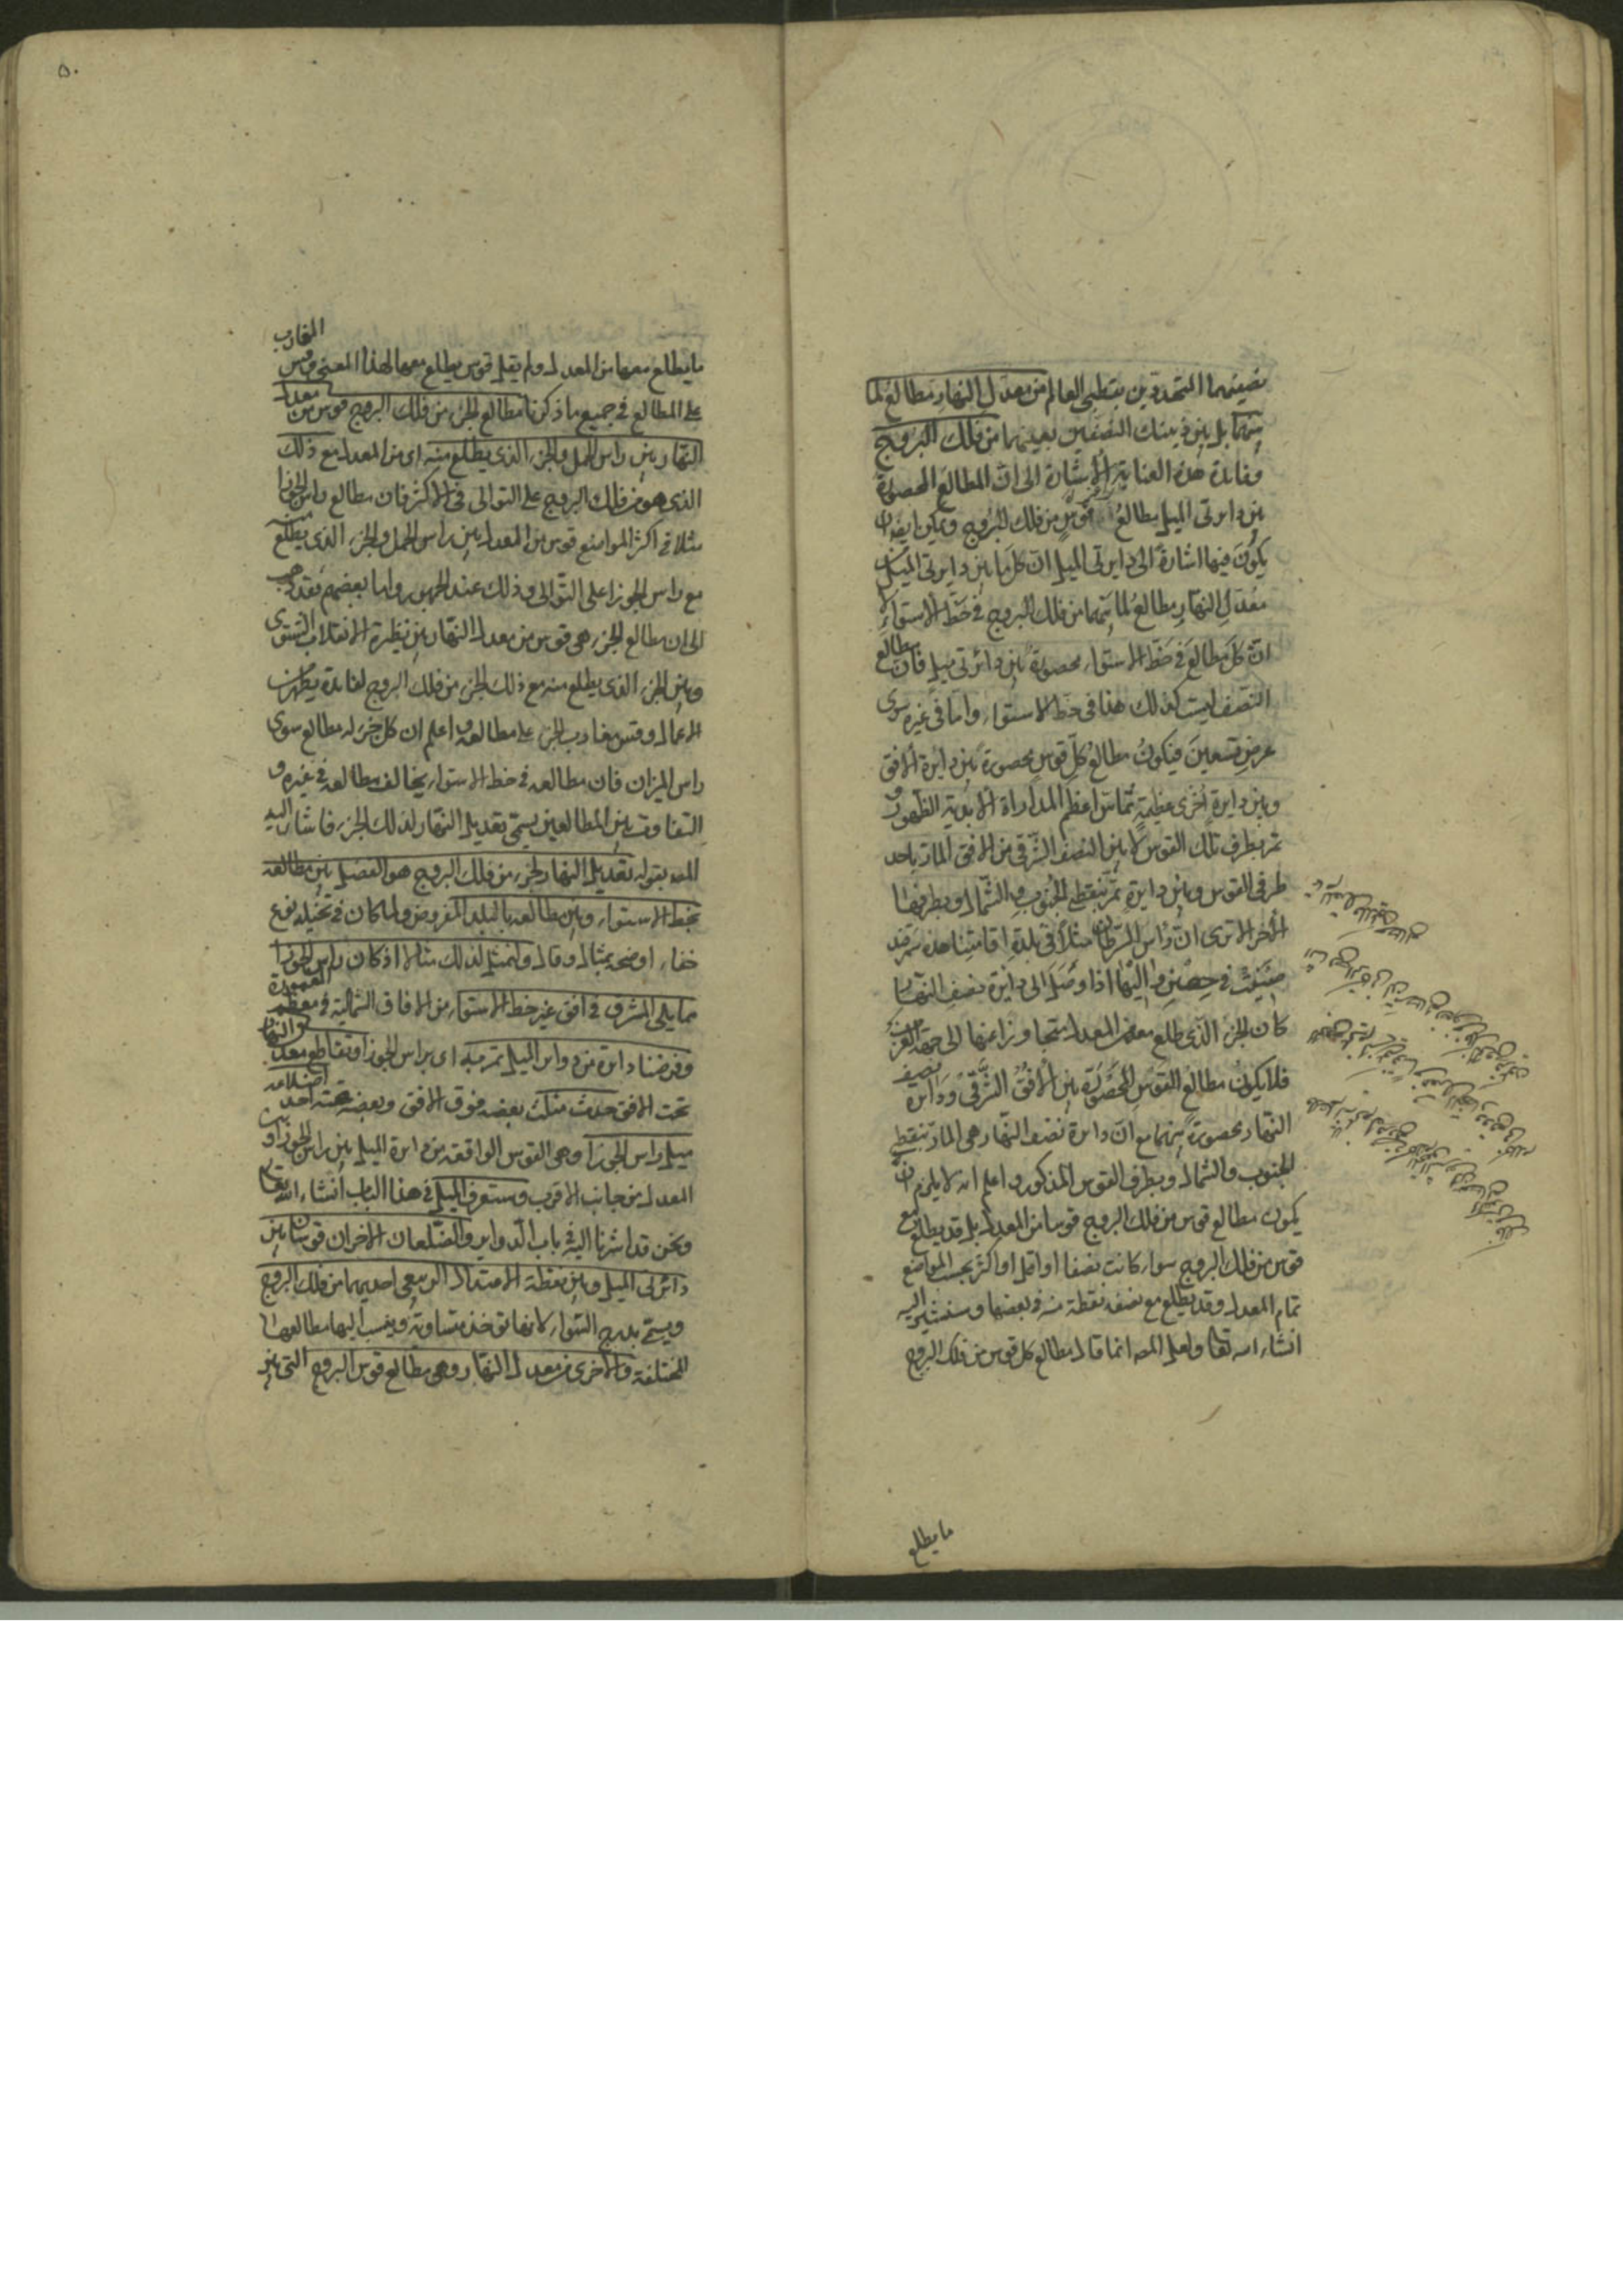 نصفيهما المتحددين بقطبى العالم من معدل النهار مطالع لما
بينهما بل بين ذينك النصفين بعينهما من فلك البروج
وفائدة هذه العناية الاشارة الى ان المطالع المحصورة
بين دايرتى الميل مطالع قوس من فلك البروج ويمكن ايضا ان
يكون فيها اشارة الى دايرتى الميل ان كل ما بين دايرتى الميل من
معدل النهار مطالع لما بينهما من فلك البروج فى خط الاستواء لا
ان كل مطالع فى خط الاستواء محصورة بين دائرتى ميل فان مطالع
النصف ليست كذلك هذا فى خط الاستواء واما فى غيره سوى
عرض تسعين فيكون مطالع كل قوس محصورة بين دايرة الافق
وبين دايرة اخرى عظيمة تماس اعظم المدارات الابدية الظهور و
تمر بطرف تلك القوس لا بين النصف الشرقى من الافق المار باحد
طرفى القوس وبين دايرة تمر بنقطتى الجنوب والشمال وبطرفها
الاخر الا ترى ان راس السرطان مثلا فى بلدة اقامتنا هذه سمرقند
صينت فى حصين واليها اذا وصل الى دائرة نصف النهار
كان الجزء الذى طلع معه من المعدل متجاوزا عنها الى جهة الغرب
فلا يكون مطالع القوس المحصورة بين الافق الشرقى ودائرة نصف
النهار محصورة بينهما مع ان دائرة نصف النهار هى المارة بنقطتى
الجنوب والشمال وبطرف القوس المذكور واعلم انه لا يلزم ان
يكون مطالع قوس من فلك البروج قوسا من المعدل بل قد يطلع مع
قوس من فلك البروج سواء كانت نصفا او اقل او اكثر بحسب المواضع
تمام المعدل وقد يطلع مع نصفه نقطة منه فى بعضها وسنشير اليه
انشاء الله تعا ولعل المصـ انما قال مطالع كل قوس من فلك البروج
ما يطلع
٥٠
ما يطلع معها من المعدل ولم يقل قوس يطلع معها لهذا المعنى وقس المغارب
على المطالع فى جميع ما ذكرنا مطالع الجزء من فلك البروج قوس من معدل
النهار بين راس الحمل والجزء الذى يطلع منه اى من المعدل مع ذلك
الذى هو من فلك البروج على التوالى فى الاكثر فان مطالع راس الجوزا
مثلا فى اكثر المواضع قوس من المعدل بين راس الحمل والجزء الذى يطلع منه
مع راس الجوزا على التوالى وذلك عند الجمهور واما بعضهم فقد ذهب
الى ان مطالع الجزء هى قوس من معدل النهار بين نظيرة الانقلاب الشتوى
وبين الجزء الذى يطلع منه مع ذلك الجزء من فلك البروج لفائدة يظهر من
الاعمال وقس مغارب الجزء على مطالعه واعلم ان كل جزء له مطالع سوى
راس الميزان فان مطالعه فى خط الاستواء يخالف مطالعه فى غيره و
التفاوت بين المطالعين يسمى تعديل النهار لذلك الجزء فاشار اليه
المصـ بقوله تعديل النهار لجزء من فلك البروج هو الفضل بين مطالعه
بخط الاستواء وبين مطالعه بالبلد المفروض ولما كان فى تخيله نوع
خفاء اوضحه بمثال وقال ولنمثل لذلك مثالا اذ كان راس الجوزا
مما يلى المشرق فى افق غير خط الاستواء من الافاق الشمالية فى معظم المعمورة
وفرضنا دائرة من دواير الميل تمر به اى براس الجوزا وتقاطع معدل النهار
تحت الافق حدث مثلث بعضه فوق الافق وبعضه تحته احد اضلاعه
ميل راس الجوزا وهى القوس الواقعة من دائرة الميل بين راس الجوزا وبين
المعدل من جانب الاقرب وستعرف الميل فى هذا الباب انشاء الله تعا
ونحن قد اشرنا اليه فى باب الدواير والضلعان الاخران قوسان بين
دائرتى الميل وبين نقطة الاعتدال الربيعى احديهما من فلك البروج
ويسمى بدرج السواء لانها تؤخذ متساوية وينسب اليها مطالعها
المختلفة والاخرى من معدل النهار وهى مطالع قوس البروج التى بين